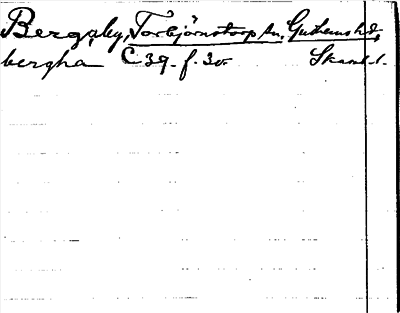 Bergaby, Torbjörnstorp sn, Gudhems hd,
bergha C 39. f. 30 Skarab. l.